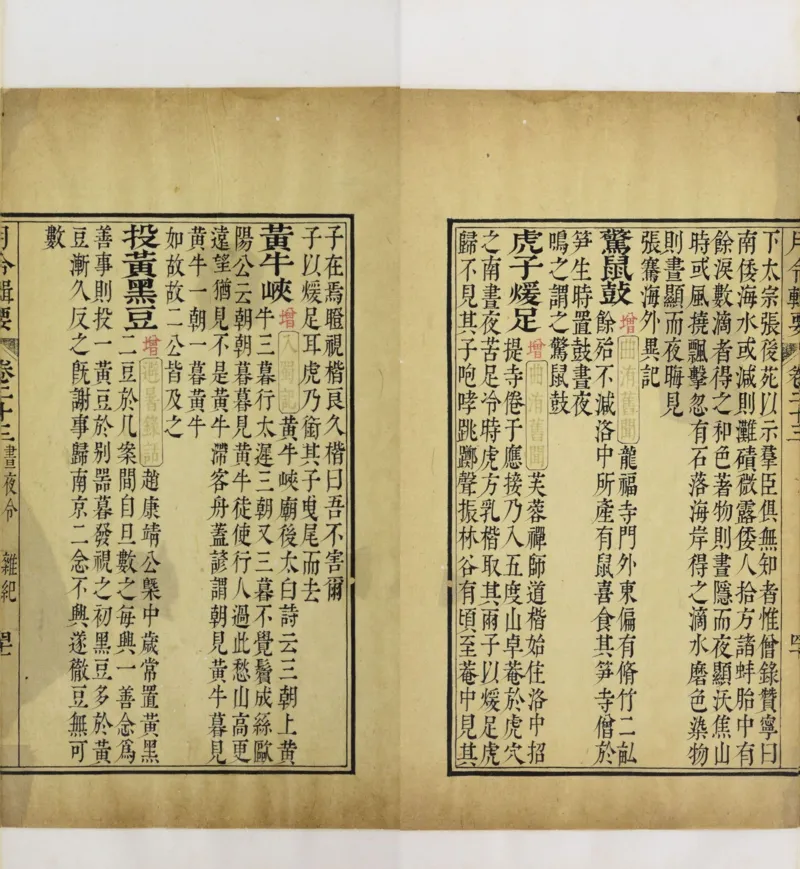 月令輯要 卷二十三
下太宗張後苑以示羣臣俱無知者惟僧錄贊寧曰
南倭海水或減則灘磧微露倭人拾方諸蚌胎中有
餘淚數滴者得之和色著物則晝隱而夜顯沃焦山
時或風撓飄擊忽有石落海岸得之滴水磨色染物
則晝顯而夜晦見
張騫海外異記
驚鼠鼓 增 曲洧舊聞 龍福寺門外東偏有脩竹二畝
餘殆不減洛中所產有鼠喜食其笋寺僧於
笋生時置鼓晝夜
鳴之謂之驚鼠鼓
虎子煖足 增 曲洧舊聞 芙蓉禪師道楷始住洛中招
提寺倦于應接乃入五度山卓菴於虎穴
之南晝夜苦足冷時虎方乳楷取其兩子以煖足虎
歸不見其子咆哮跳躑聲振林谷有頃至菴中見其
子在焉瞪視楷良久楷曰吾不害爾
子以煖足耳虎乃銜其子曳尾而去
黃牛峽 增 入蜀記 黃牛峽廟後太白詩云三朝上黃
牛三暮行太遲三朝又三暮不覺鬢成絲歐
陽公云朝朝暮暮見黃牛徒使行人過此愁山高更
遠望猶見不是黃牛滯客舟蓋諺謂朝見黃牛暮見
黃牛一朝一暮黃牛
如故故二公皆及之
投黃黑豆 增 避暑錄話 趙康靖公槩中歲常置黃黑
二豆於几案間自旦數之每興一善念爲
善事則投一黃豆於別器暮發視之初黑豆多於黃
豆漸久反之旣謝事歸南京二念不興遂徹豆無可
數
月令輯要 卷二十三 晝夜令 雜紀